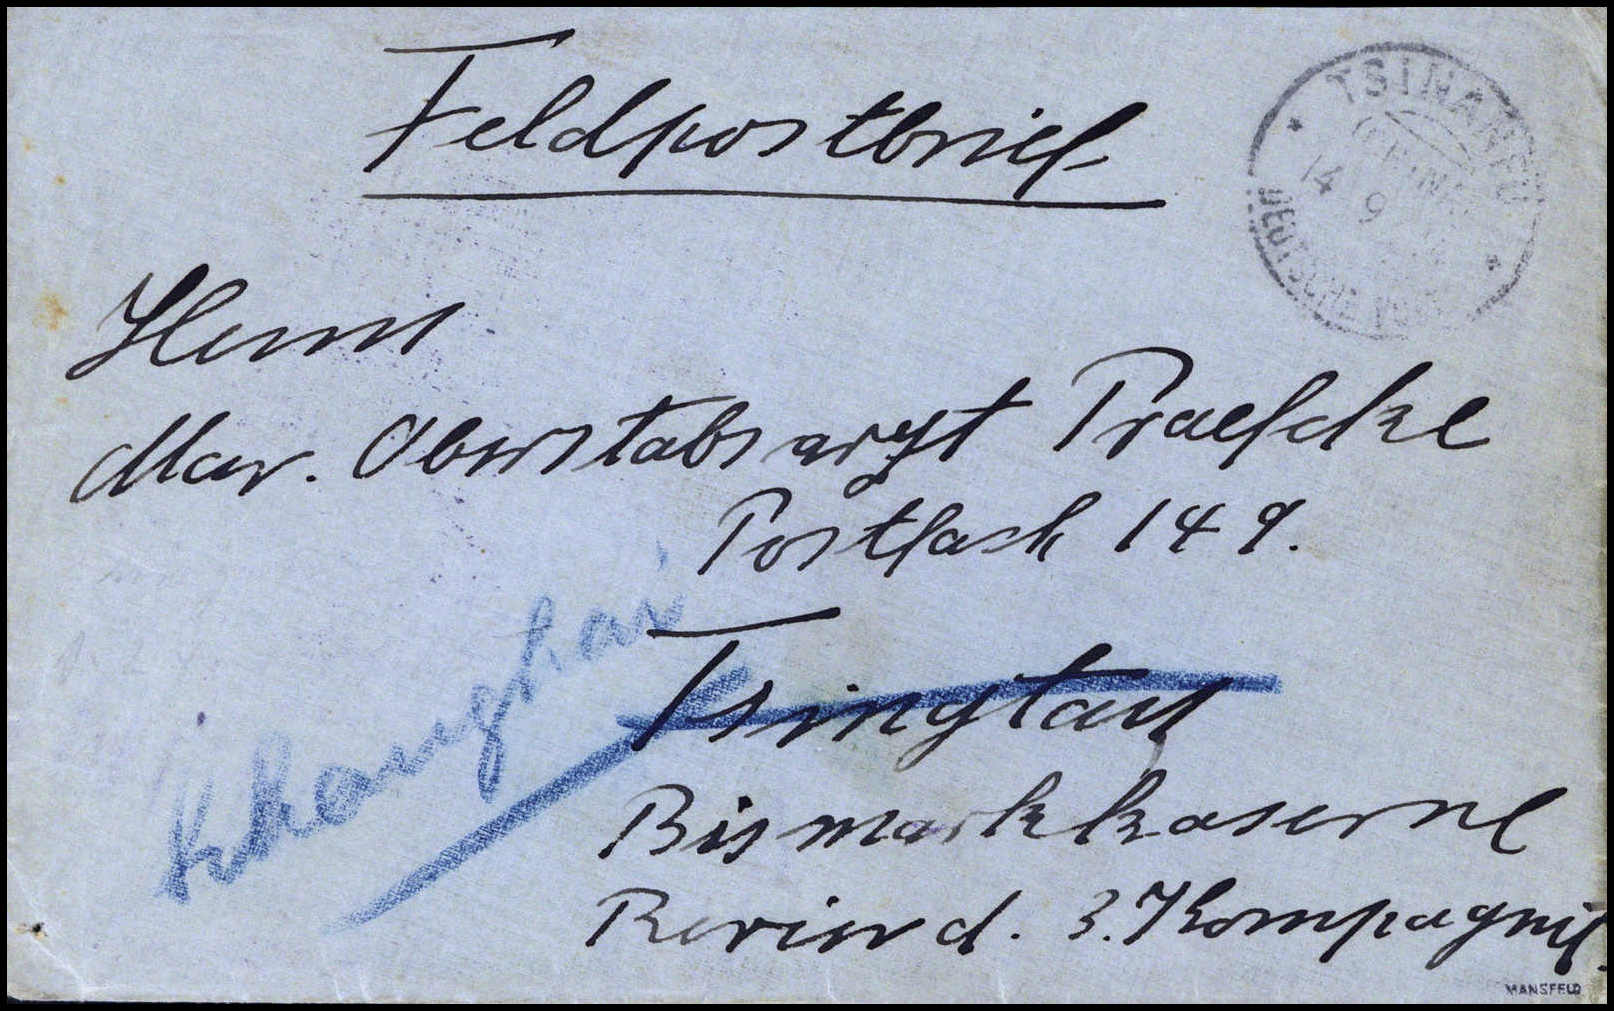 Feldpostbrief
TSINANFU
(CHINA)
14 9
DEUTSCHE POST
Herrn
Mar. Oberstabsarzt Praefcke
Postfach 149.
Shanghai
Tsingtau
Bismarkkaserne
Revier d. 3. Kompagnie
MANSFELD